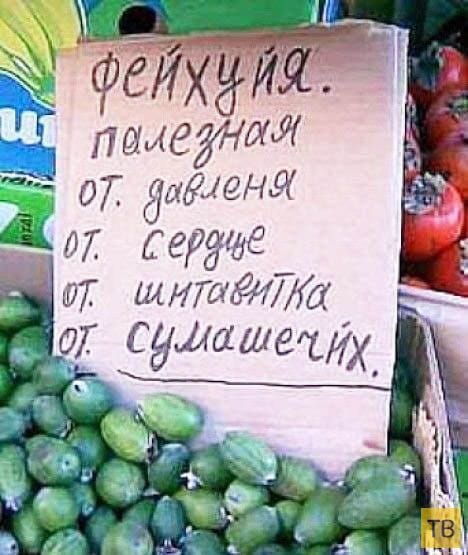 Фейхуйя.
палезная
от. давленя
от. сердце
от. шитавитка
от. сумашечйх.
ТВ